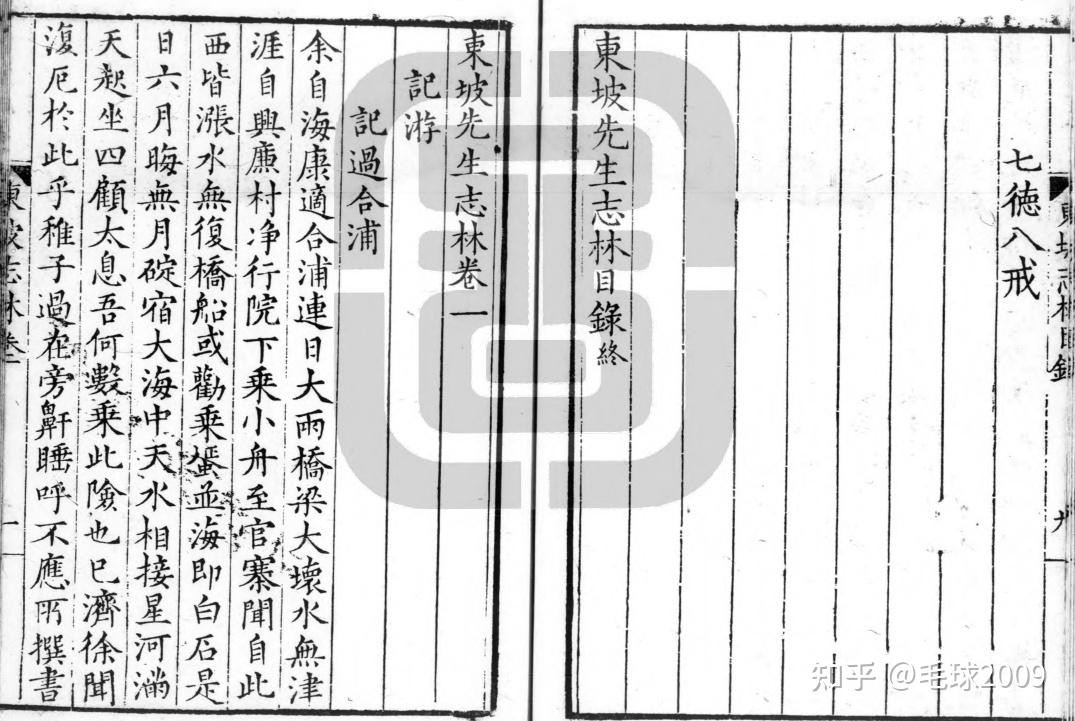 七徳八戒
東坡先生志林目録終
東坡志林目録
九
東坡先生志林卷一
記游
記過合浦
余自海康適合浦連日大雨橋梁大壞水無津
涯自興廉村净行院下乗小舟至官寨聞自此
西皆漲水無復橋船或勸乘蜑並海即白石是
日六月晦無月碇宿大海中天水相接星河滿
天起坐四顧太息吾何數乘此險也已濟徐聞
復厄於此乎稚子過在旁鼾睡呼不應所撰書
東坡志林卷一
一
知乎 @毛球2009